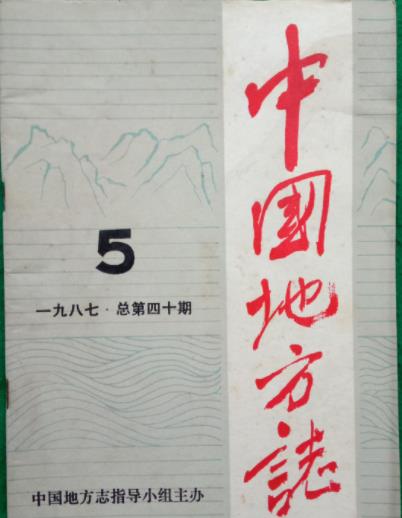 中国地方誌
5
一九八七·总第四十期
中国地方志指导小组主办